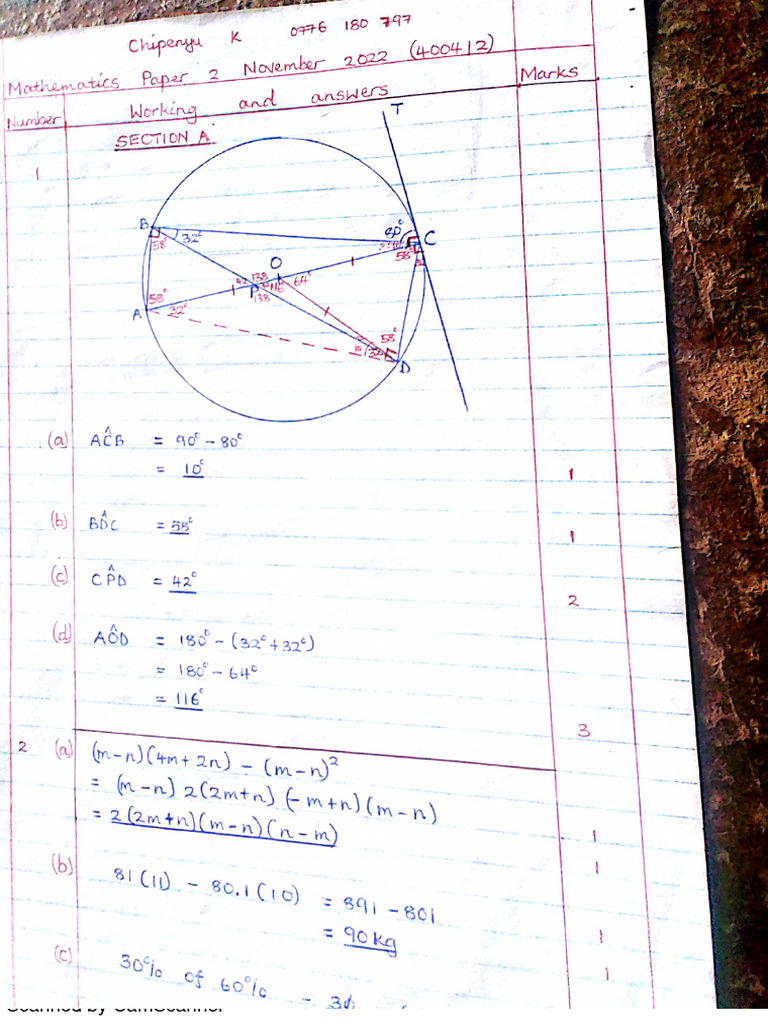 Chipenyu K 0776 180 797
Mathematics Paper 2 November 2022 (4004/2)
Marks
Number
Working and answers
SECTION A
1
T
B
58°
32°
80°
C
58°
O
138
64°
P
116
138
58°
A
32°
58°
32°
D
(a) AĈB = 90° - 80°
= 10°
1
(b) BD̂C = 58°
1
(c) CP̂D = 42°
2
(d) AÔD = 180° - (32° + 32°)
= 180° - 64°
= 116°
3
2 (a) (m-n)(4m+2n) - (m-n)²
= (m-n) 2(2m+n) (-m+n)(m-n)
= 2(2m+n)(m-n)(n-m)
1
(b)
1
81(11) - 80.1(10) = 891 - 801
= 90kg
1
(c)
1
30% of 60%
Scanned by CamScanner